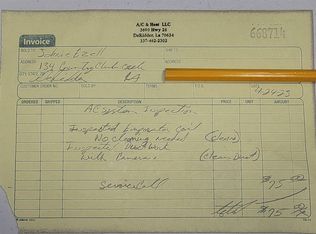 A/C & Heat LLC
3600 Hwy 26
DeRidder, La 70634
337-462-2302
668714
Invoice
SOLD TO
ADDRESS
134 Country Club
ADDRESS
CITY, STATE, ZIP
DeRidder
LA
CUSTOMER ORDER NO.
SOLD BY
TERMS
F.O.B.
DATE
4-24-23
ORDERED
SHIPPED
DESCRIPTION
PRICE
UNIT
AMOUNT
AC system Inspection
Inspected Evaporator Coil
No cleaning needed
(Clean)
Inspected Duct work
with Camera
(Clean Duct)
Service Call
$75 00
Total $75 00